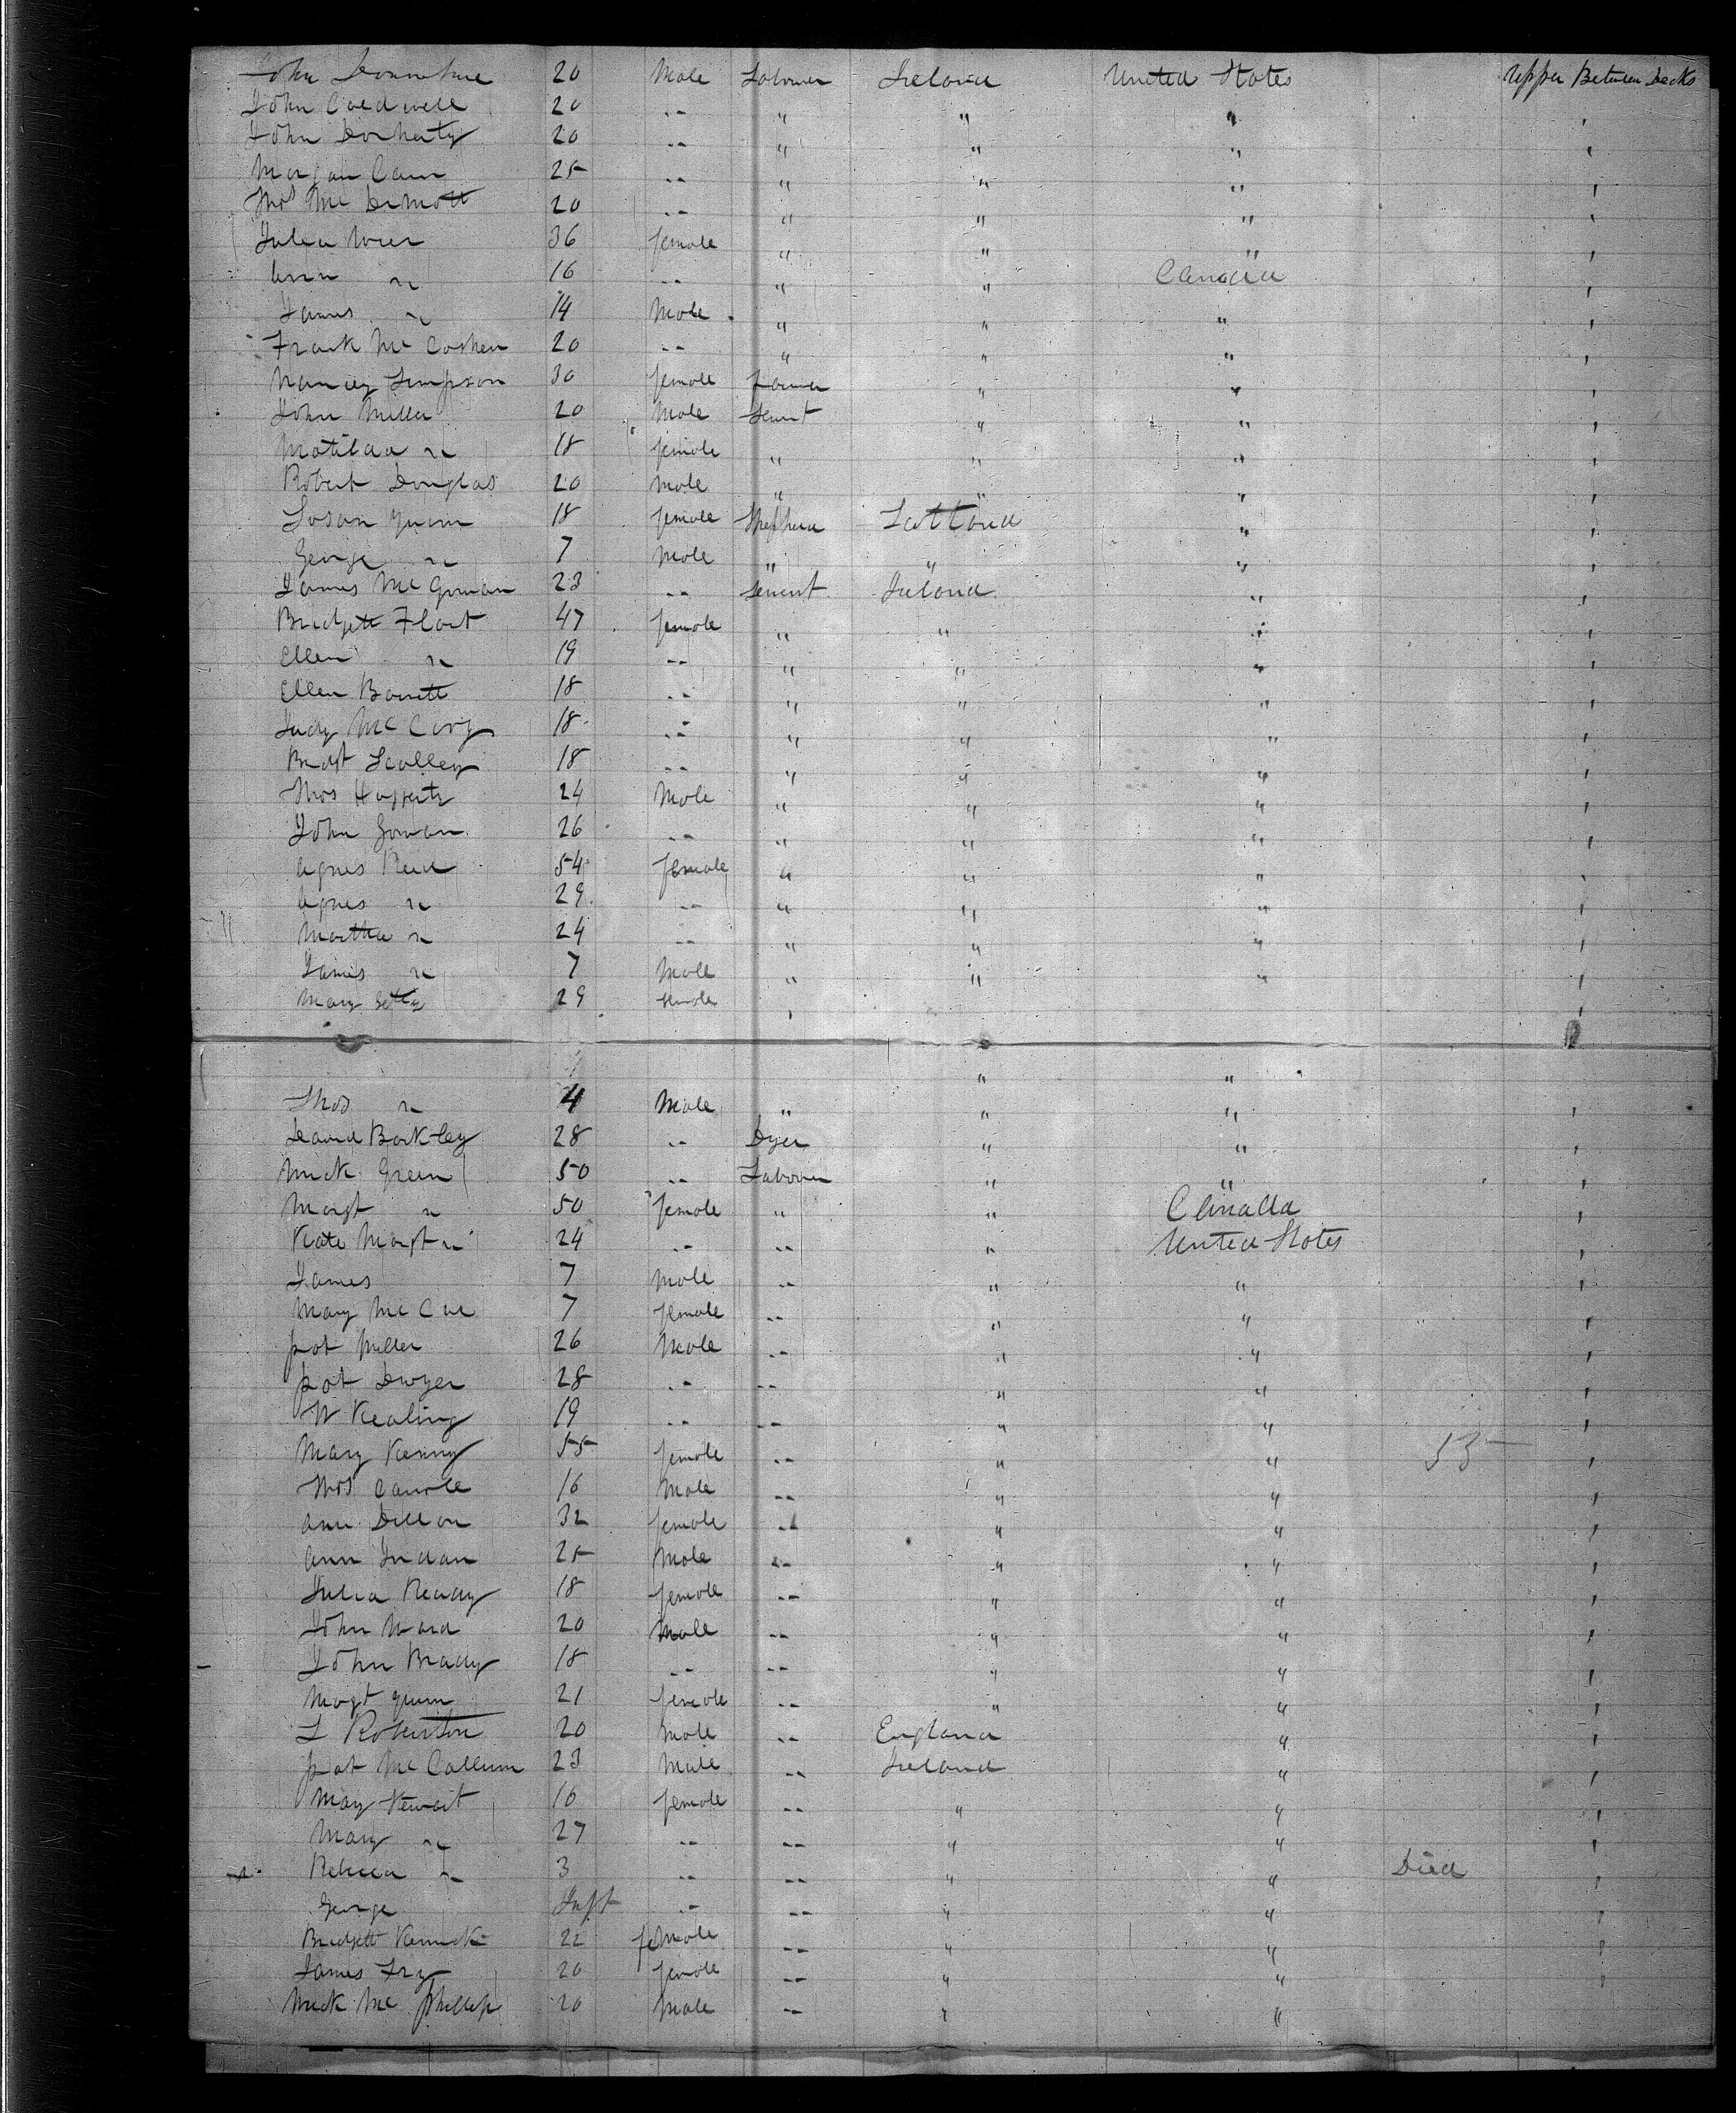 John 20 Male Laborer Ireland United States Upper Between Decks
John Caldwell 20 -- " " " '
John Doherty 20 -- " " " '
Morgan Cann 25 -- " " " '
Thos Mc Dermott 20 -- " " " '
Julia Wier 36 female " " " '
Ann " 16 -- " " Canada '
James " 14 Male " " " '
Frank Mc Cosker 20 -- " " " '
Nancy Simpson 30 female Farmer " " '
John Miller 20 Male Servnt " " '
Matilda " 18 female " " " '
Robert Douglas 20 Male " " " '
Susan Gunn 18 female Shepherd Scotland " '
George " 7 Male " " " '
James Mc Gowan 23 -- Servnt Ireland " '
Bridgett Float 47 female " " " '
Ellen " 19 -- " " " '
Ellen Barrett 18 -- " " " '
Judy Mc 18 -- " " " '
Bridgt Scolley 18 -- " " " '
Thos Hafferty 24 Male " " " '
John Gowan 26 -- " " " '
Agnes Reid 54 female " " " '
Agnes " 29 -- " " " '
Martha " 24 -- " " " '
James " 7 Male " " " '
Mary Getty 29 female ' '
" "
Thos " 4 Male " " " '
David Barkley 28 -- Dyer " " '
Mick Green 50 -- Laborer " " '
Margt " 50 female " " Canada '
Kate Margt " 24 -- -- " United States '
James 7 Male -- " " '
Mary Mc Cue 7 female -- " " '
pat Miller 26 Male -- " " '
pat Dwyer 28 -- -- " " '
W Kealing 19 -- -- " " '
Mary Kenny 55 female -- " " 55 '
Thos Carrole 16 Male -- " " '
Ann Dillon 32 female -- " " '
Ann 25 Male -- " " '
Julia Ready 18 female -- " " '
John Ward 20 Male -- " " '
John Brady 18 -- -- " " '
Magt Quinn 21 female -- " " '
L Roberton 20 Male -- England " '
pat Mc Callum 23 Male -- Ireland " '
May Stewart 16 female -- " " '
Mary " 27 -- -- " " '
Rebecca " 3 -- -- " " Died '
George Inft -- -- " " '
Bridgett 22 female -- " " '
James Fry 20 female -- " " '
Mick Mc Phillip 20 Male -- " "